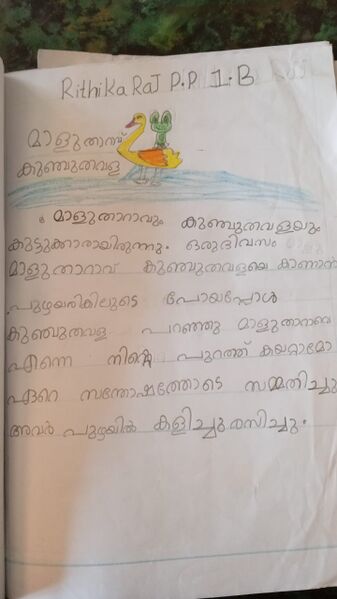 Rithika Raj P.P 1.B
മാളുതാറാവ്
കുഞ്ഞുതവള
മാളുതാറാവും കുഞ്ഞുതവളയും
കുട്ടുക്കാരായിരുന്നു. ഒരുദിവസം
മാളുതാറാവ് കുഞ്ഞുതവളയെ കാണാൻ
പുഴയരികിലൂടെ പോയപ്പോൾ
കുഞ്ഞുതവള പറഞ്ഞു മാളുതാറാവെ
എന്നെ നിന്റെ പുറത്ത് കയറ്റാമോ
ഏറെ സന്തോഷത്തോടെ സമ്മതിച്ചു
അവർ പുഴയിൽ കളിച്ചു രസിച്ചു.